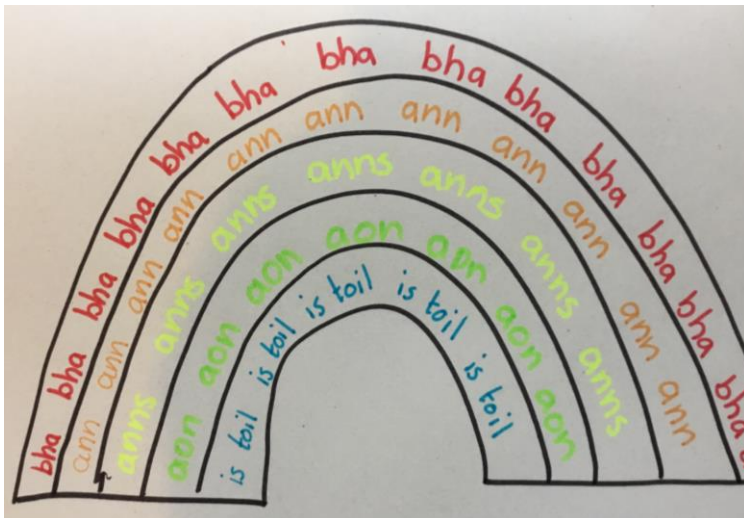 bha bha bha bha bha bha bha bha bha bha bha bha bha
ann ann ann ann ann ann ann ann ann ann ann
anns anns anns anns anns anns anns
aon aon aon aon aon aon aon
is toil is toil is toil is toil is toil